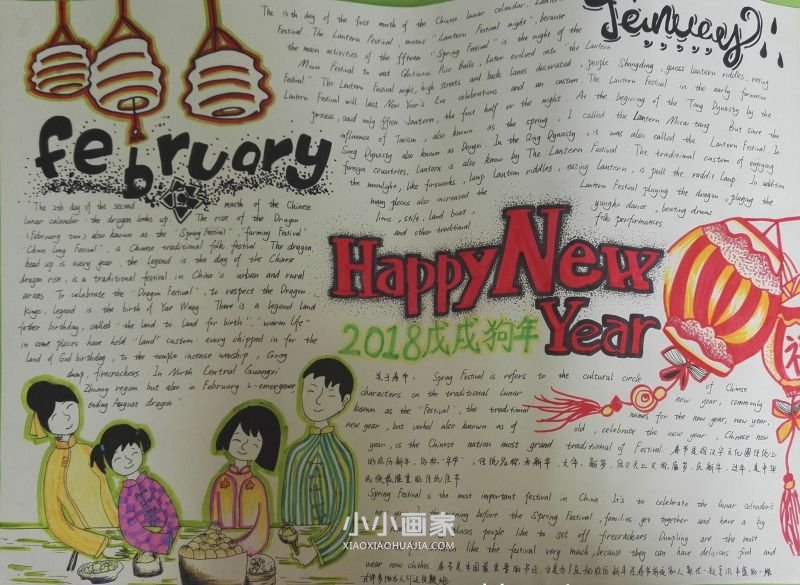 The 15th day of the first month of the Chinese lunar calendar,
Festival The Lantern Festival, means "Lantern Festival night", because
the main activities of the fifteen "Spring Festival" is the night of the
Moon Festival to eat Glutinous Rice Balls, later evolved into "the Lantern
Festival". The Lantern Festival night, high streets and lack lanes decorated, people Shangding, guess lantern riddles, eating
Lantern Festival will last New Year's Eve celebrations and an custom. The Lantern Festival in the early formation
process, said only fften Jawtern, the first half or the night. At the begining of the Tang Dynasty by the
influence of Taoism, also known as the spring, I called the Lantern Micai tang. But since the
Sung Dynasty also known as Dengxi. In the Qing Dynasty, it was also called the Lantern Festival. In
foreign countries, Lantern is also know by The Lantern Festival. The traditional custom of enjoying
the moonlight, like fireworks, lamp lantern riddles, eating lantern, is pull the rabbit lamp. In addition
many places also increased the Lantern Festival playing the dragon, playing the
lions, stilt, land boat, yangko dance, beating drums
and other traditional folk performances
february
The 2th day of the second month of the Chinese
lunar calendar, the dragon looks up. The rise of the Dragon
(february two) also known as the "Spring Festival", "farming Festival"
"Chun long Festival", is Chinese traditional folk festival The dragon,
head up is every year, the legend is the day of the Chinese
dragon rise, is a traditional festival in China's urban and rural
areas. To celebrate the "Dragon Festival", to respect the Dragon
King, legend is the birth of Yao Wang. There is a legend land
father birthday, called "the land to land for birth". "warm life"
in some places have held "land" custom: every chipped in for the
land of God birthday, to the temple incense worship,
firecrackers. In North Central Guangxi
Zhuang region but also in February 2 - emergence
ending August dragon"
Happy New
Year
2018戊戌狗年
福
关于春节: Spring Festival is refers to the cultural circle of Chinese
characters on the traditional lunar new year, commonly
known as the "festival", the traditional names for the new year, new year,
new year, but verbal also known as of old, celebrate the new year, Chinese new
year, is the Chinese nation most grand traditional of Festival. 春节是指汉字文化圈传统上
的农历新年, 俗称"年节", 传统名称为新年、大年、新岁, 但口头上又称度岁、庆新年、过年, 是中华
民族最隆重的传统佳节
Spring Festival is the most important festival in China. It's to celebrate the lunar calendar's
before the Spring Festival, families get together and have a big
people like to set off firecrackers Dumpling are the most
like the festival very much, because they can have delicious food and
wear new clothes. 春节是中国最重要的节日
小小画家
XIAOXIAOHUAJIA.COM